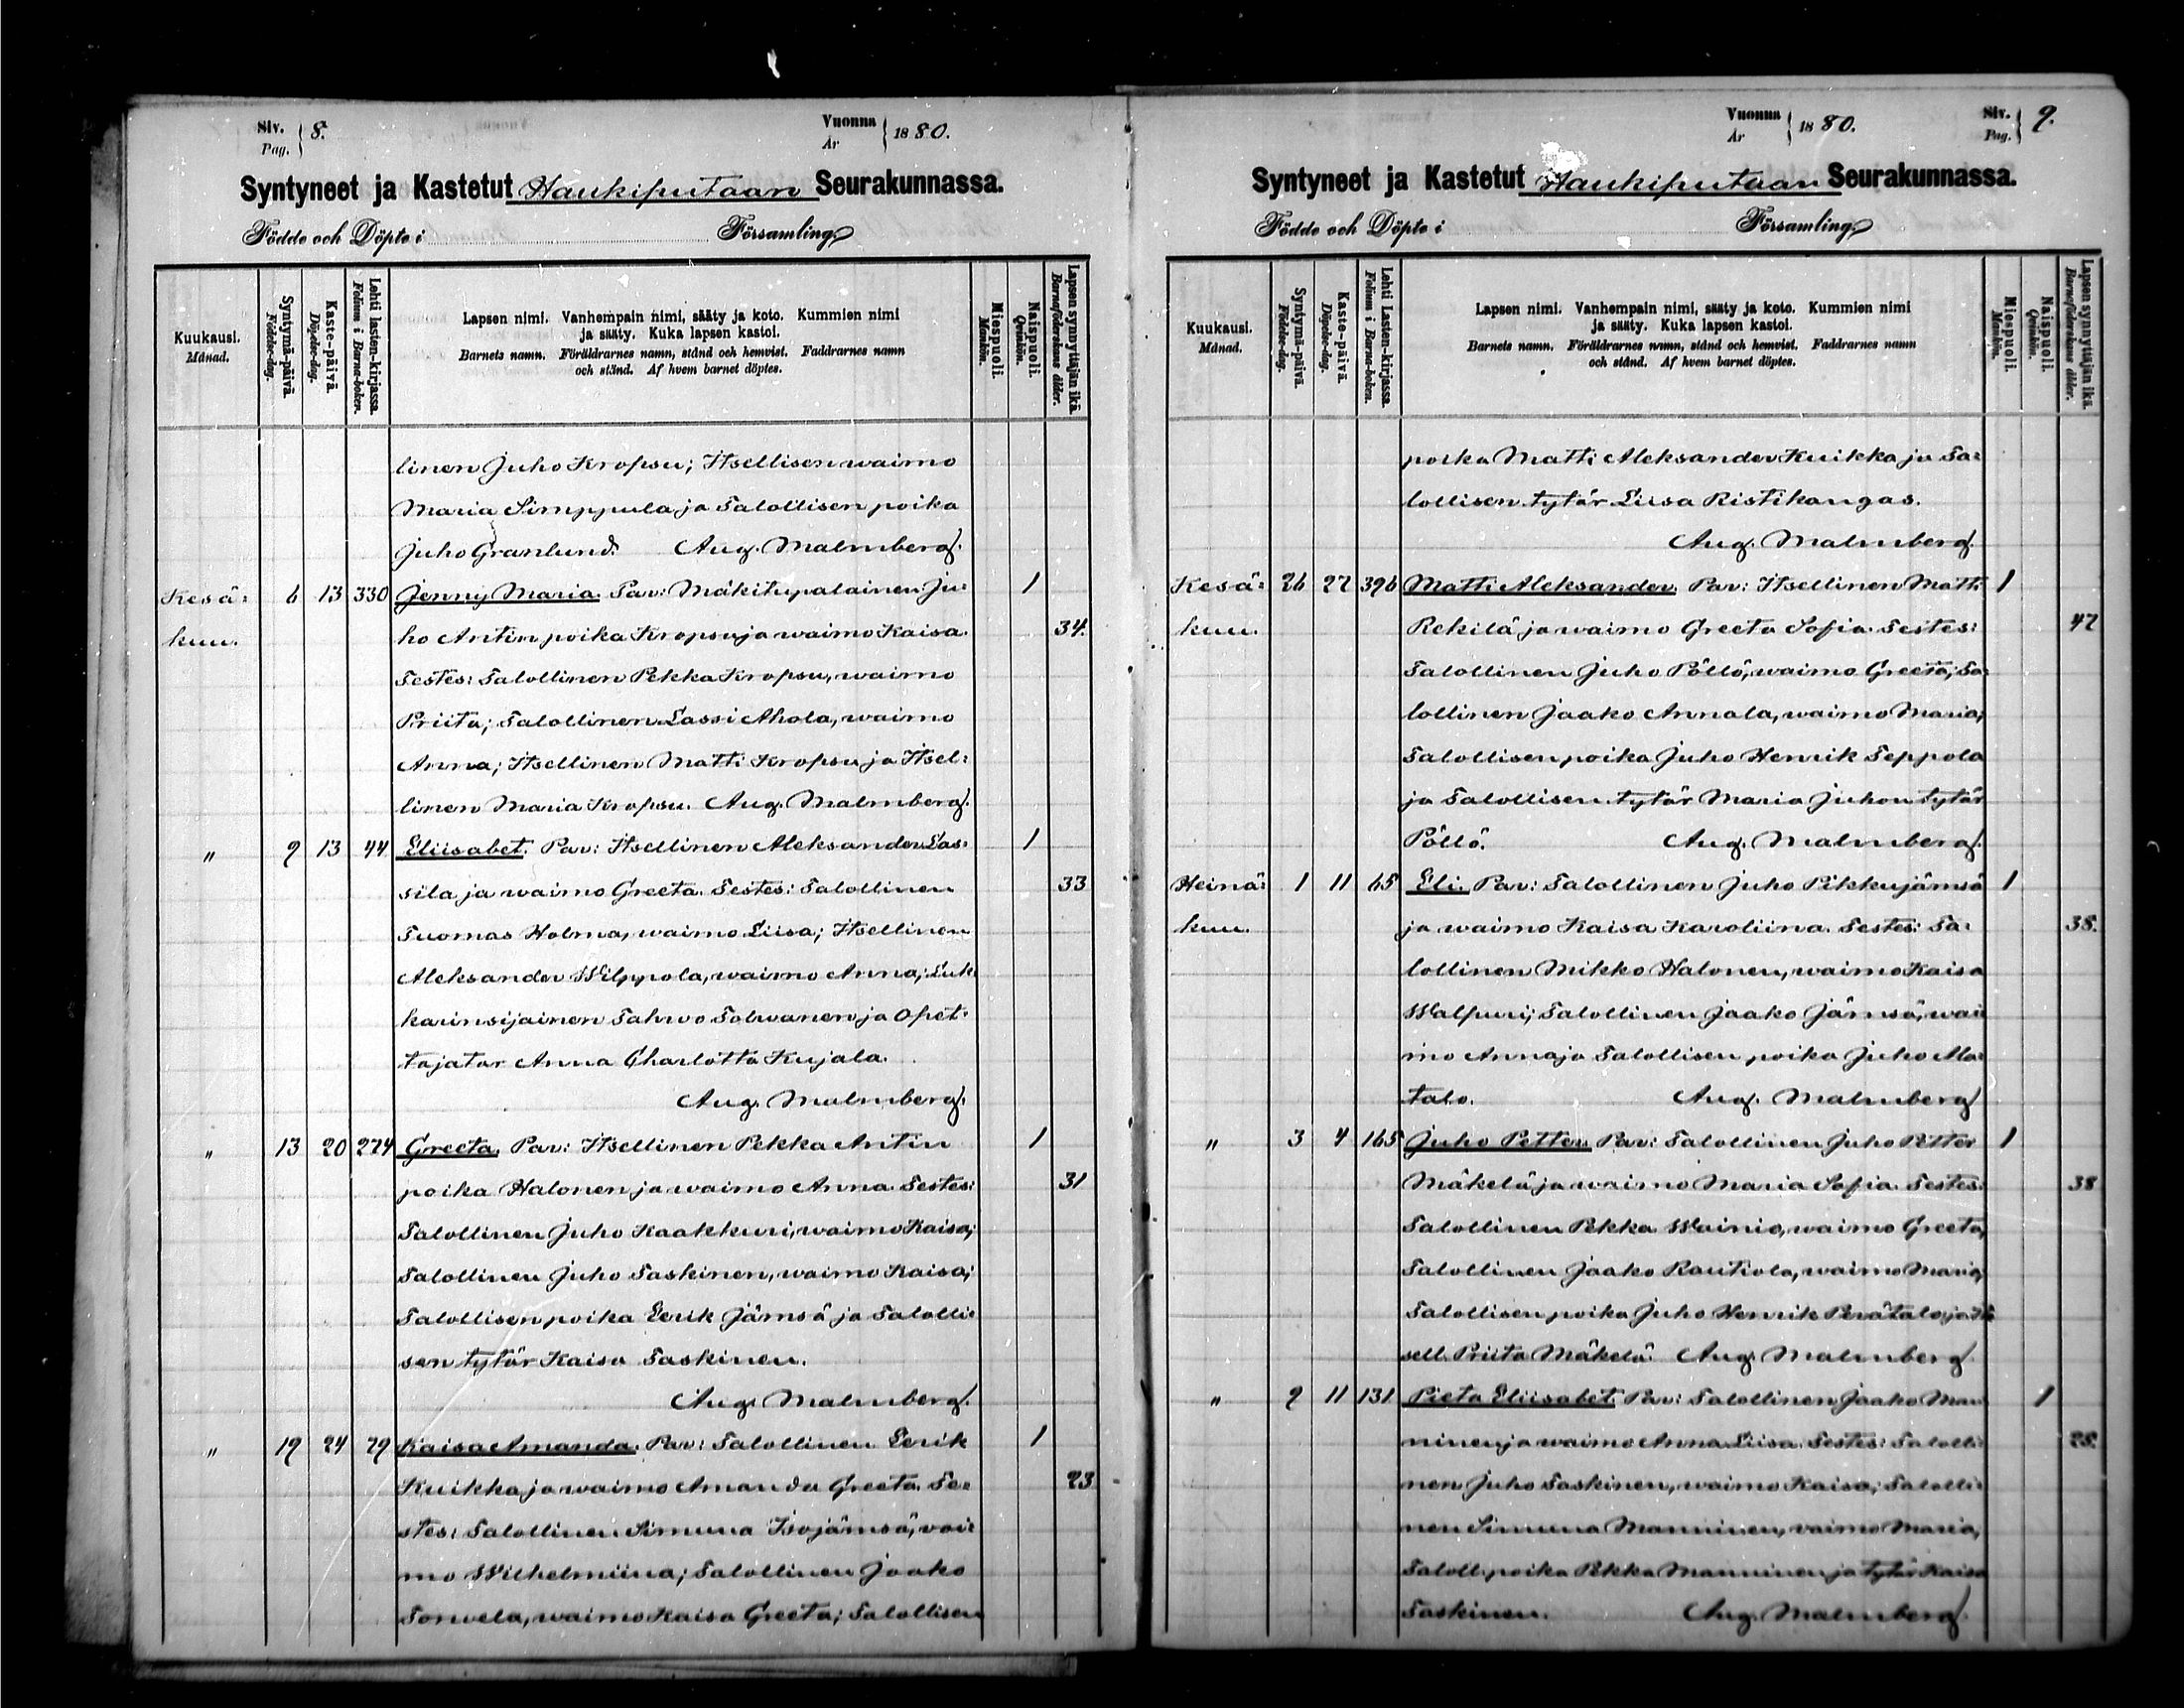 Siv. Pag. 8. Vuonna År 1880.
Syntyneet ja Kastetut Haukiputaan Seurakunnassa.
Födde och Döpte i Församling
Kuukausi. Månad.
Syntymä-päivä. Födelse-dag.
Kaste-päivä. Döpelse-dag.
Lehti lasten-kirjassa. Folium i Barna-boken.
Lapsen nimi. Vanhempain nimi, sääty ja koto. Kummien nimi
ja sääty. Kuka lapsen kastoi.
Barnets namn. Föräldrarnes namn, stånd och hemvist. Faddrarnes namn
och stånd. Af hvem barnet döptes.
Miespuoli. Mankön.
Naispuoli. Qvinkön.
Lapsen synnyttäjän ikä. Barnaföderskans ålder.
linen Juho Kropsu; Itsellisen waimo
Maria Simppula ja Talollisen poika
Juho Granlund. Aug. Malmberg.
Kesä: 6 13 330 Jenny Maria. Par: Mäkitupalainen Ju:
kuu. ho Antin poika Kropsu ja waimo Kaisa. 1 34.
Testes: Talollinen Pekka Kropsu, waimo
Priita; Talollinen Lassi Ahola, waimo
Anna; Itsellinen Matti Kropsu ja Itsel:
linen Maria Kropsu. Aug. Malmberg.
" 9 13 44 Eliisabet. Par: Itsellinen Aleksander Las: 1
sila ja waimo Greeta. Testes: Talollinen 33
Tuomas Holma, waimo Liisa; Itsellinen
Aleksander Wilppola, waimo Anna; Luk:
karinsijainen Tahwo Tolwanen ja Opet:
tajatar Anna Charlotta Kujala.
Aug. Malmberg.
" 13 20 274 Greeta. Par: Itsellinen Pekka Antin 1
poika Halonen ja waimo Anna. Testes: 31
Talollinen Juho Kaakkuri, waimo Kaisa;
Talollinen Juho Taskinen, waimo Kaisa;
Talollisen poika Eerik Jämsä ja Talolli:
sen tytär Kaisa Taskinen.
Aug. Malmberg.
" 19 24 79 Kaisa Amanda. Par: Talollinen Eerik 1
Kuikka ja waimo Amanda Greeta. Te: 23
stes: Talollinen Simuna Isojämsä, wai:
mo Wilhelmiina; Talollinen Jaako
Torwela, waimo Kaisa Greeta; Talollisen
Vuonna År 1880. Siv. Pag. 9.
Syntyneet ja Kastetut Haukiputaan Seurakunnassa.
Födde och Döpte i Församling
Kuukausi. Månad.
Syntymä-päivä. Födelse-dag.
Kaste-päivä. Döpelse-dag.
Lehti Lasten-kirjassa. Folium i Barna-boken.
Lapsen nimi. Vanhempain nimi, sääty ja koto. Kummien nimi
ja sääty. Kuka lapsen kastoi.
Barnets namn. Föräldrarnes namn, stånd och hemvist. Faddrarnes namn
och stånd. Af hvem barnet döptes.
Miespuoli. Mankön.
Naispuoli. Qvinkön.
Lapsen synnyttäjän ikä. Barnaföderskans ålder.
poika Matti Aleksander Kuikka ja Ta:
lollisen tytär Liisa Ristikangas.
Aug. Malmberg.
Kesä: 26 27 396 Matti Aleksander. Par: Itsellinen Matti 1
kuu. Rekilä ja waimo Greeta Sofia. Testes: 47
Talollinen Juho Pöllö, waimo Greeta; Ta:
lollinen Jaako Annala, waimo Maria;
Talollisen poika Juho Henrik Seppola
ja Talollisen tytär Maria Juhon tytär
Pöllö. Aug. Malmberg.
Heinä: 1 11 65 Eli. Par: Talollinen Juho Pikkujämsä 1
kuu. ja waimo Kaisa Karoliina. Testes: Ta: 38.
lollinen Mikko Halonen, waimo Kaisa
Walpuri; Talollinen Jaako Jämsä, wai
mo Anna ja Talollisen poika Juho Ala:
talo. Aug. Malmberg
" 3 4 165 Juho Petter. Par: Talollinen Juho Petter 1
Mäkelä ja waimo Maria Sofia. Testes: 38
Talollinen Pekka Wainio, waimo Greeta,
Talollinen Jaako Rautiola, waimo Maria,
Talollisen poika Juho Henrik Perätalo ja It
sell. Priita Mäkelä. Aug. Malmberg
" 9 11 131 Pieta Eliisabet. Par: Talollinen Jaako Man 1
ninen ja waimo Anna Liisa. Testes: Talolli: 28.
nen Juho Taskinen, waimo Kaisa; Talolli:
nen Simuna Manninen, waimo Maria,
Taloll. poika Pekka Manninen ja tytär Kaisa
Taskinen. Aug. Malmberg.